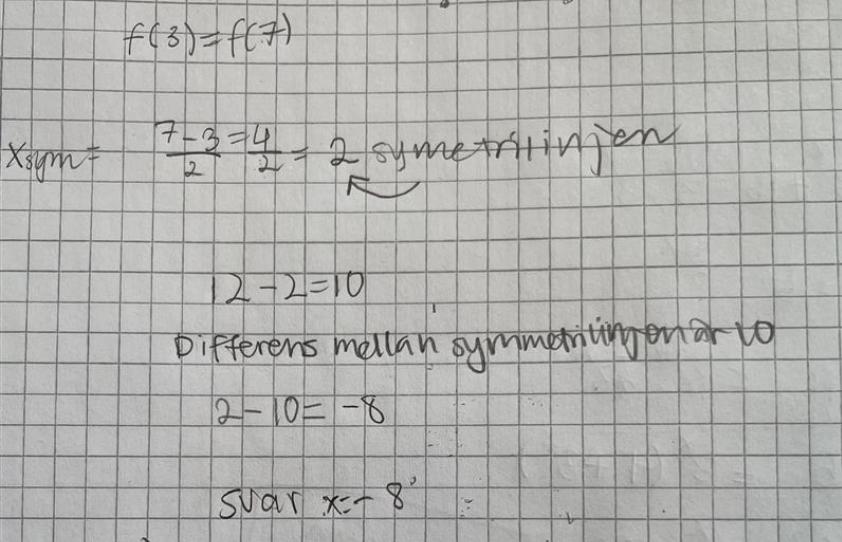 f(3)=f(7)
xsym= 7-3/2 = 4/2 = 2 symetrilinjen
12-2=10
Differens mellan symmetrilinjen är 10
2-10= -8
svar x=-8